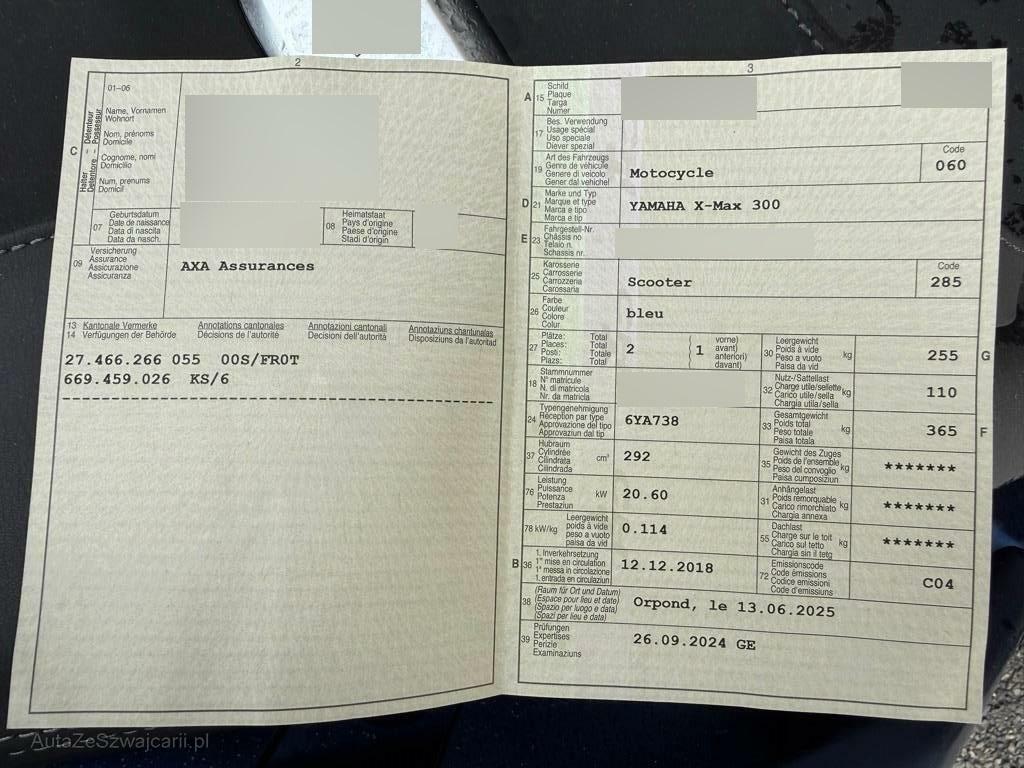 2
01–06
Name, Vornamen
Wohnort
Nom, prénoms
Domicile
Cognome, nomi
Domicilio
Num, prenums
Domicil
C
Halter – Détenteur
Detentore – Possessur
07
Geburtsdatum
Date de naissance
Data di nascita
Data da nasch.
08
Heimatstaat
Pays d'origine
Paese d'origine
Stadi d'origin
09
Versicherung
Assurance
Assicurazione
Assicuranza
AXA Assurances
13 Kantonale Vermerke Annotations cantonales Annotazioni cantonali Annotaziuns chantunalas
14 Verfügungen der Behörde Décisions de l'autorité Decisioni dell'autorità Disposiziuns da l'autoritad
27.466.266 055 00S/FR0T
669.459.026 KS/6
3
A 15
Schild
Plaque
Targa
Numer
17
Bes. Verwendung
Usage spécial
Uso speciale
Diever spezial
19
Art des Fahrzeugs
Genre de véhicule
Genere di veicolo
Gener dal vehichel
Motocycle
Code
060
D 21
Marke und Typ
Marque et type
Marca e tipo
Marca e tip
YAMAHA X-Max 300
E 23
Fahrgestell-Nr.
Châssis no
Telaio n.
Schassis nr.
25
Karosserie
Carrosserie
Carrozzeria
Carossaria
Scooter
Code
285
26
Farbe
Couleur
Colore
Colur
bleu
27
Plätze: Total
Places: Total
Posti: Totale
Plazs: Total
2
vorne)
avant)
anteriori)
davant)
1
30
Leergewicht
Poids à vide
Peso a vuoto
Paisa da vid
kg
255
G
18
Stammnummer
N° matricule
N. di matricola
Nr. da matricla
32
Nutz-/Sattellast
Charge utile/sellette
Carico utile/sella
Chargia utila/sella
kg
110
24
Typengenehmigung
Réception par type
Approvazione del tipo
Approvaziun dal tip
6YA738
33
Gesamtgewicht
Poids total
Peso totale
Paisa totala
kg
365
F
37
Hubraum
Cylindrée
Cilindrata
Cilindrada
cm³
292
35
Gewicht des Zuges
Poids de l'ensemble
Peso del convoglio
Paisa cumposiziun
kg
*******
76
Leistung
Puissance
Potenza
Prestaziun
kW
20.60
31
Anhängelast
Poids remorquable
Carico rimorchiato
Chargia annexa
kg
*******
78 kW/kg
Leergewicht
poids à vide
peso a vuoto
paisa da vid
0.114
55
Dachlast
Charge sur le toit
Carico sul tetto
Chargia sin il tetg
kg
*******
B 36
1. Inverkehrsetzung
1re mise en circulation
1a messa in circolazione
1. entrada en circulaziun
12.12.2018
72
Emissionscode
Code émissions
Codice emissioni
Code d'emissiuns
C04
38
(Raum für Ort und Datum)
(Espace pour lieu et date)
(Spazio per luogo e data)
(Spazi per lieu e data)
Orpond, le 13.06.2025
39
Prüfungen
Expertises
Perizie
Examinaziuns
26.09.2024 GE
AutaZeSzwajcarii.pl